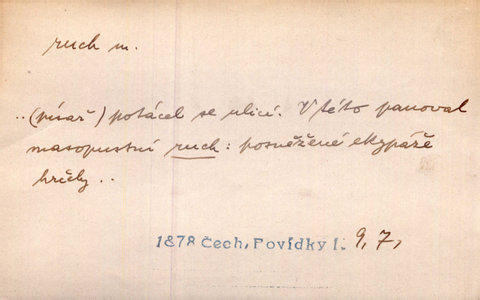 ruch m.
..(písař) potácel se ulicí. V této panoval
masopustní ruch: posněžené ekypáže
hrčely..
1878 Čech, Povídky I. 9,7,